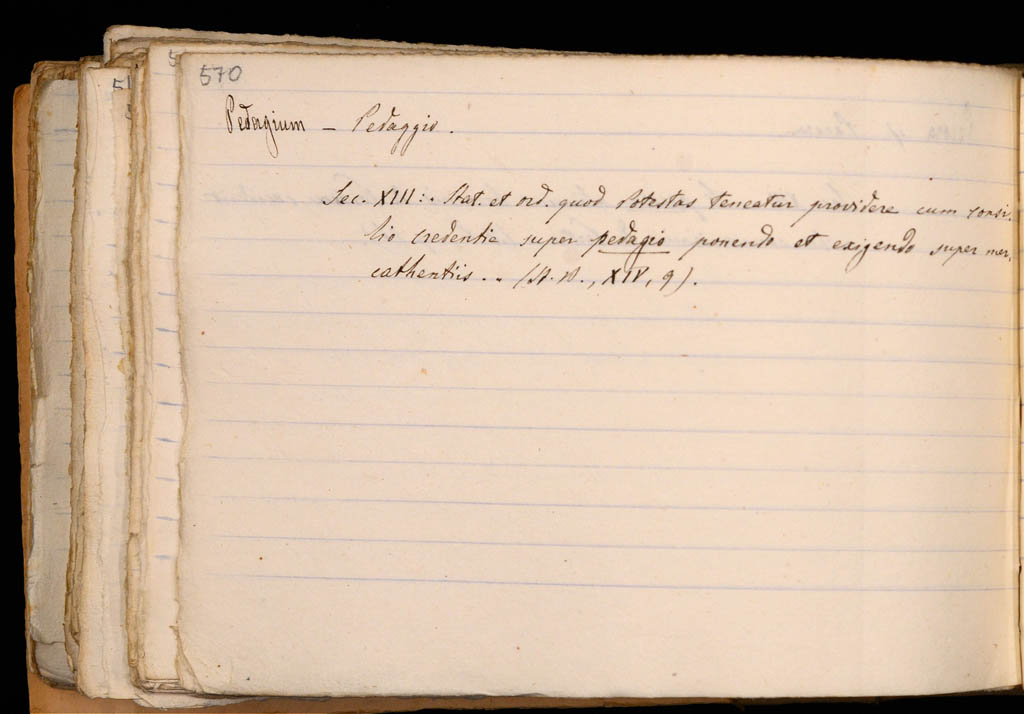 570
Pedagium – Pedaggio.
Sec. XIII: . Stat. et ord. quod Potestas teneatur providere cum consi-
lio credentie super pedagio ponendo et exigendo super mer-
cathentiis . . (St. N., XIV, 9).